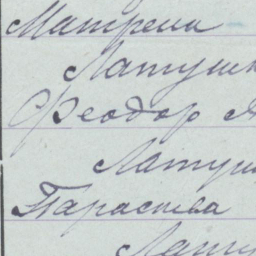 Матрени
Латушк
Феодор Я
Латуш
Параскева
Лату